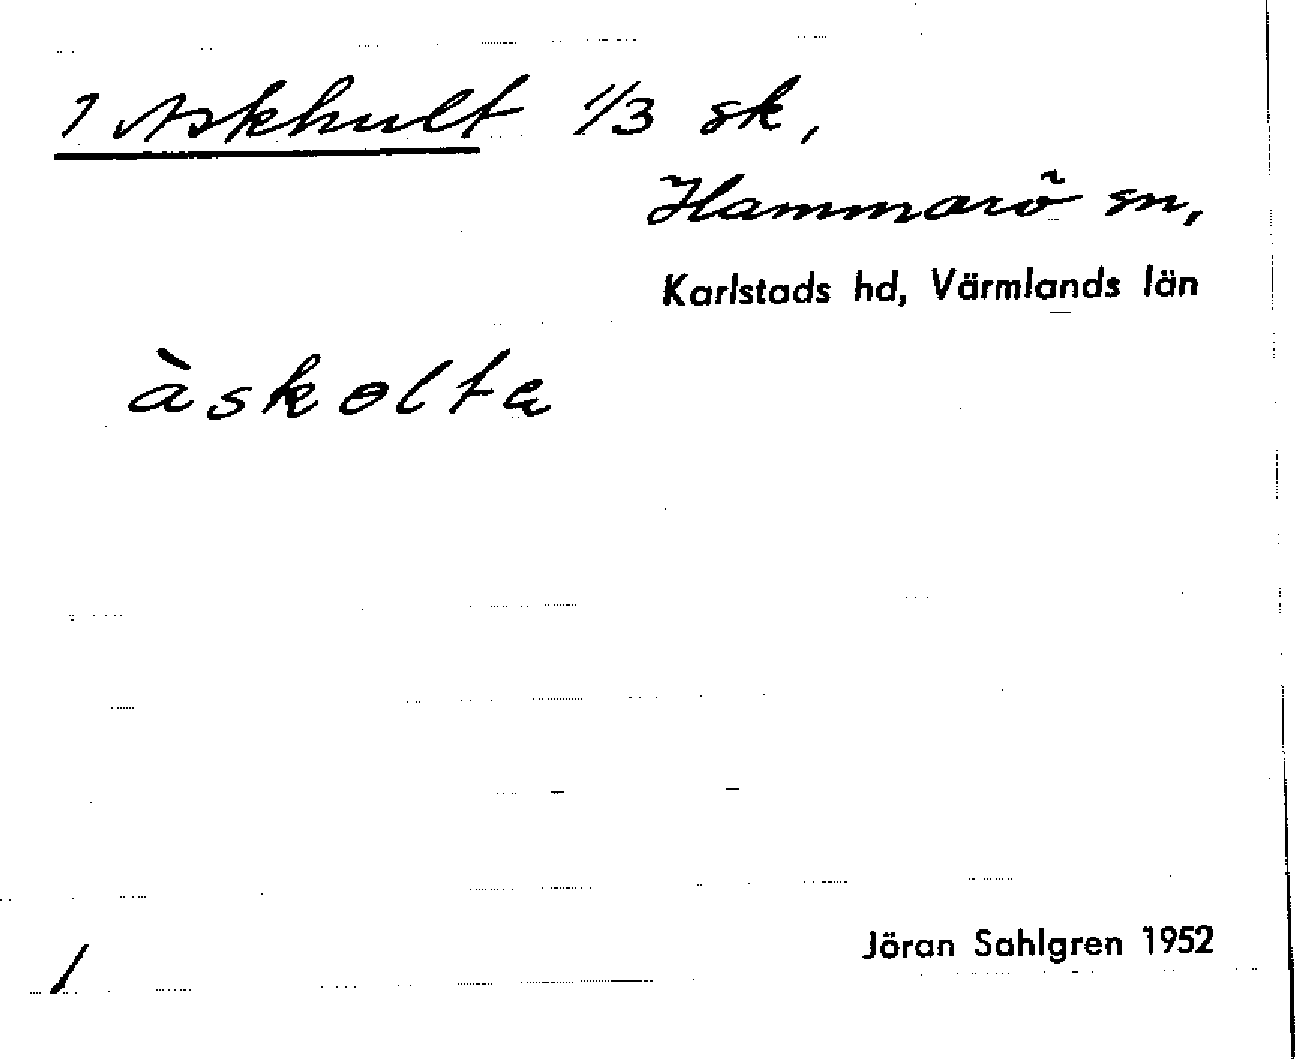 1 Askhult 1/3 sk,
Hammarö sn,
Karlstads hd, Värmlands län
àskolta
Jöran Sahlgren 1952
/